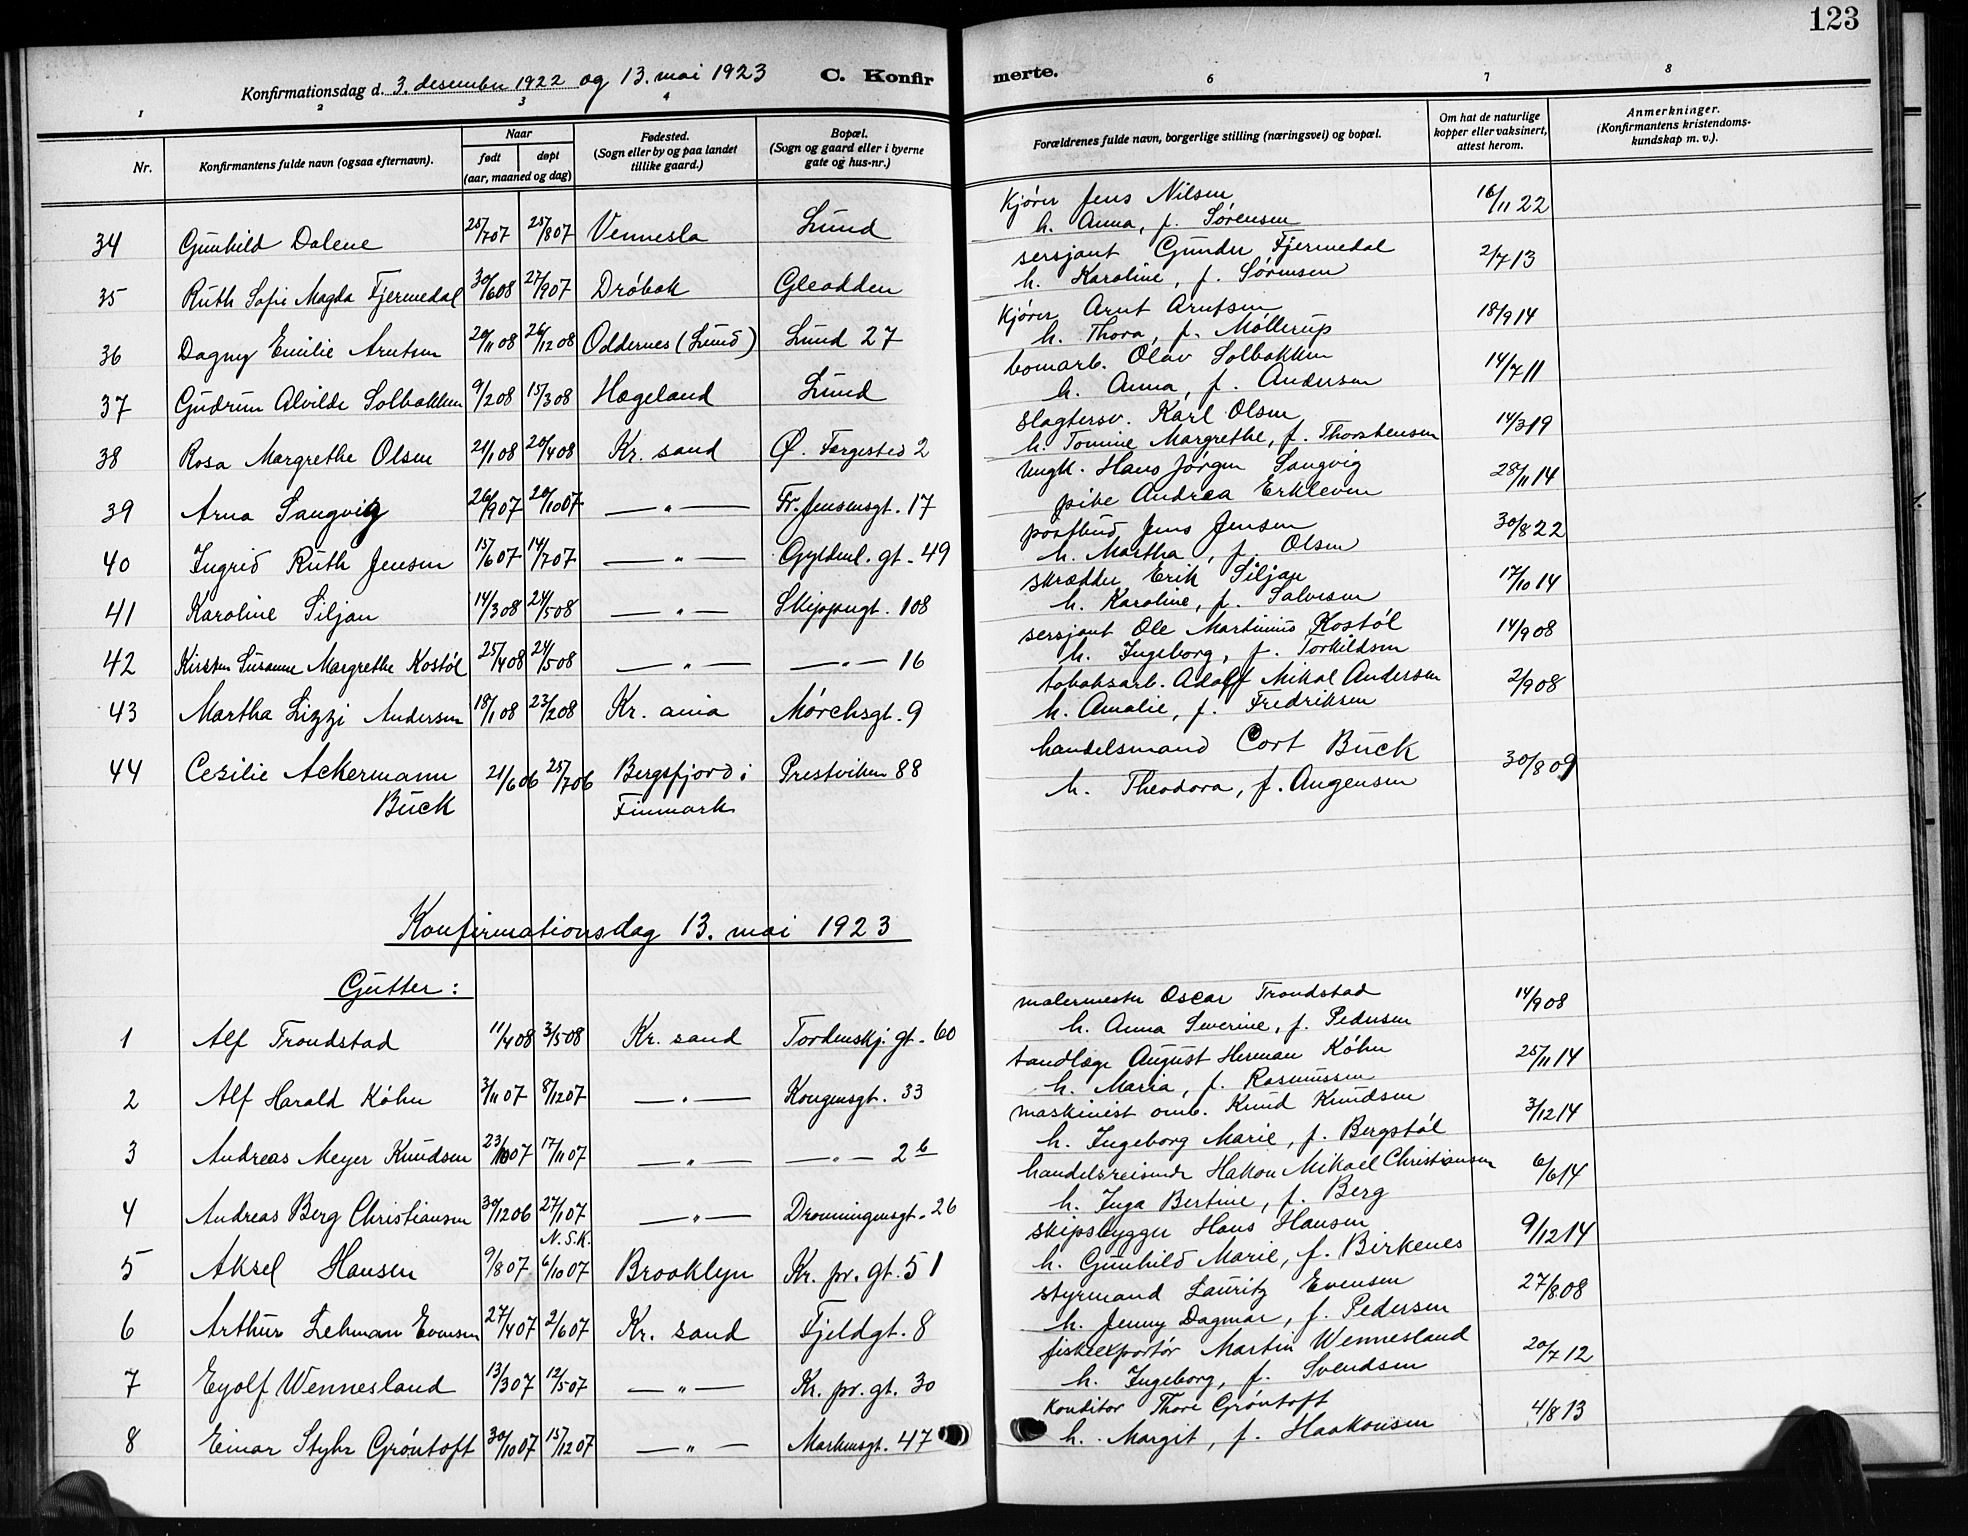 123
Konfirmationsdag d. 3. desember 1922 og 13. mai 1923 C. Konfirmerte.
1 2 3 4 6 7 8
Nr. Konfirmantens fulde navn (ogsaa efternavn). Naar født døpt (aar, maaned og dag) Fødested. (Sogn eller by og paa landet tillike gaard.) Bopæl. (Sogn og gaard eller i byerne gate og hus-nr.) Forældrenes fulde navn, borgerlige stilling (næringsvei) og bopæl. Om hat de naturlige kopper eller vaksinert, attest herom. Anmerkninger. (Konfirmantens kristendomskundskap m. v.).
34 Gunhild Dalene 25/7 07 25/8 07 Vennesla Lund Kjører Jens Nilsen 16/11 22
h. Anna, f. Sørensen
35 Ruth Sofie Magda Fjermedal 30/6 08 27/9 07 Drøbak Gleodden sersjant Gunder Fjermedal 2/7 13
h. Karoline, f. Sørensen
36 Dagny Emilie Arntsen 20/11 08 26/12 08 Oddernes (Lund) Lund 27 Kjører Arnt Arntsen 18/9 14
h. Thora, f. Møllerup
37 Gudrun Alvilde Solbakken 9/2 08 15/3 08 Hægeland Lund bomarb. Olav Solbakken 14/7 11
h. Anna, f. Andersen
38 Rosa Margrethe Olsen 21/1 08 20/4 08 Kr. sand Ø. Færgested 2 slagtersv. Karl Olsen 14/3 19
h. Tomine Margrethe, f. Thorstensen
39 Arna Langvig 26/9 07 20/10 07 — " — Fr. Jensensgt. 17 Ungk. Hans Jørgen Langvig 28/11 14
pike Andrea Erkleven
40 Ingrid Ruth Jensen 15/6 07 14/7 07 — " — Gyldenl. gt. 49 postbud Jens Jensen 30/8 22
h. Martha, f. Olsen
41 Karoline Siljan 14/3 08 24/5 08 — " — Skippergt. 108 skrædder Erik Siljan 17/10 14
h. Karoline, f. Salvesen
42 Kirsten Susanne Margrethe Kostøl 25/4 08 24/5 08 — " — — " — 16 sersjant Ole Martinius Kostøl 14/9 08
h. Ingeborg, f. Torkildsen
43 Martha Lizzi Andersen 18/1 08 23/2 08 Kr. ania Mørchsgt. 9 tobaksarb. Adolf Mikal Andersen 2/9 08
h. Amalie, f. Fredriksen
44 Cesilie Ackermann 21/6 06 25/7 06 Bergsfjord i Prestviken 88 handelsmand Cort Buck 30/8 09
Buck Finmark h. Theodora, f. Angensen
Konfirmationsdag 13. mai 1923
Gutter:
1 Alf Trondstad 11/4 08 3/5 08 Kr. sand Tordenskj. gt. 60 malermester Oscar Trondstad 14/9 08
h. Anna Severine, f. Pedersen
2 Alf Harald Køhn 3/11 07 8/12 07 — " — Kongensgt. 33 tandlæge August Herman Køhn 25/11 14
h. Maria, f. Rasmussen
3 Andreas Meyer Knudsen 23/10 07 17/11 07 — " — — " — 2 b maskinist omb. Knud Knudsen 3/12 14
h. Ingeborg Marie, f. Bergstøl
4 Andreas Berg Christiansen 30/12 06 27/1 07 — " — Dronningensgt. 26 handelsreisende Hakon Mikael Christiansen 6/6 14
h. Inga Bertine, f. Berg
N.S.K.
5 Aksel Hansen 9/8 07 6/10 07 Brooklyn Kr. pr. gt. 51 skipsbygger Hans Hansen 9/12 14
h. Gunhild Marie, f. Birkenes
6 Arthur Lehman Evensen 27/4 07 2/6 07 Kr. sand Fjeldgt. 8 styrmand Lauritz Evensen 27/8 08
h. Jenny Dagmar, f. Pedersen
7 Eyolf Wennesland 13/3 07 12/5 07 — " — Kr. pr. gt. 30 fiskeexportør Martin Wennesland 20/7 12
h. Ingeborg, f. Svendsen
8 Einar Styhr Grøntoft 30/10 07 15/12 07 — " — Markensgt. 47 Konditor Thore Grøntoft 4/8 13
h. Margit, f. Haakonsen